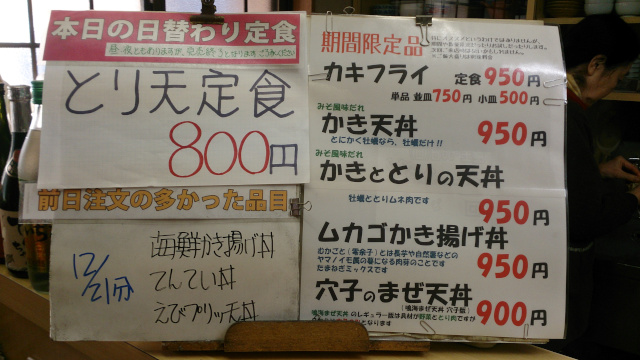 本日の日替わり定食
とり天定食
800円
前日注文の多かった品目
12/21分
海鮮かき揚げ丼
てんてい丼
えびプリッ天丼
期間限定品
カキフライ 定食950円
単品 並皿750円 小皿500円
みそ風味だれ
かき天丼 950円
とにかく牡蠣なら、牡蠣だけ!!
みそ風味だれ
かきととりの天丼
牡蠣ととりムネ肉です 950円
ムカゴかき揚げ丼
むかごと(零余子)とは長芋や自然薯などの
ヤマノイモ属の蔓になる肉芽のことです
たまねぎミックスです 950円
穴子のまぜ天丼 900円
(鳴海まぜ天丼 穴子飯)